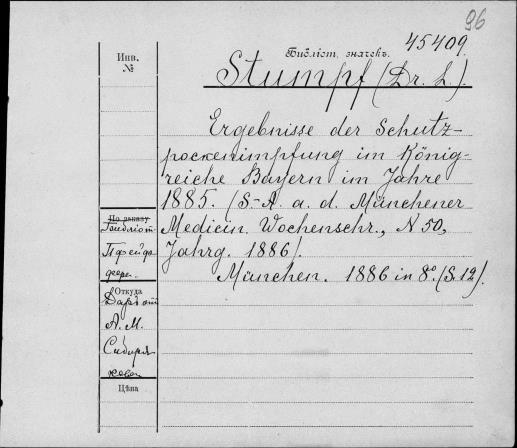 96
Библіот. значекъ. 45409.
Инв.
№
Stumpf (Dr. L.).
Ergebnisse der Schutz-
pockenimpfung im König-
reiche Bayern im Jahre
1885. (S-A. a. d. Münchener
Medicin. Wochenschr., N 50,
Jahrg. 1886).
München. 1886 in 8°. (S. 12).
По заказу
Библіот
Пфейф
Откуда
Даръ отъ
А. М.
Сибиря
кова
Цѣна